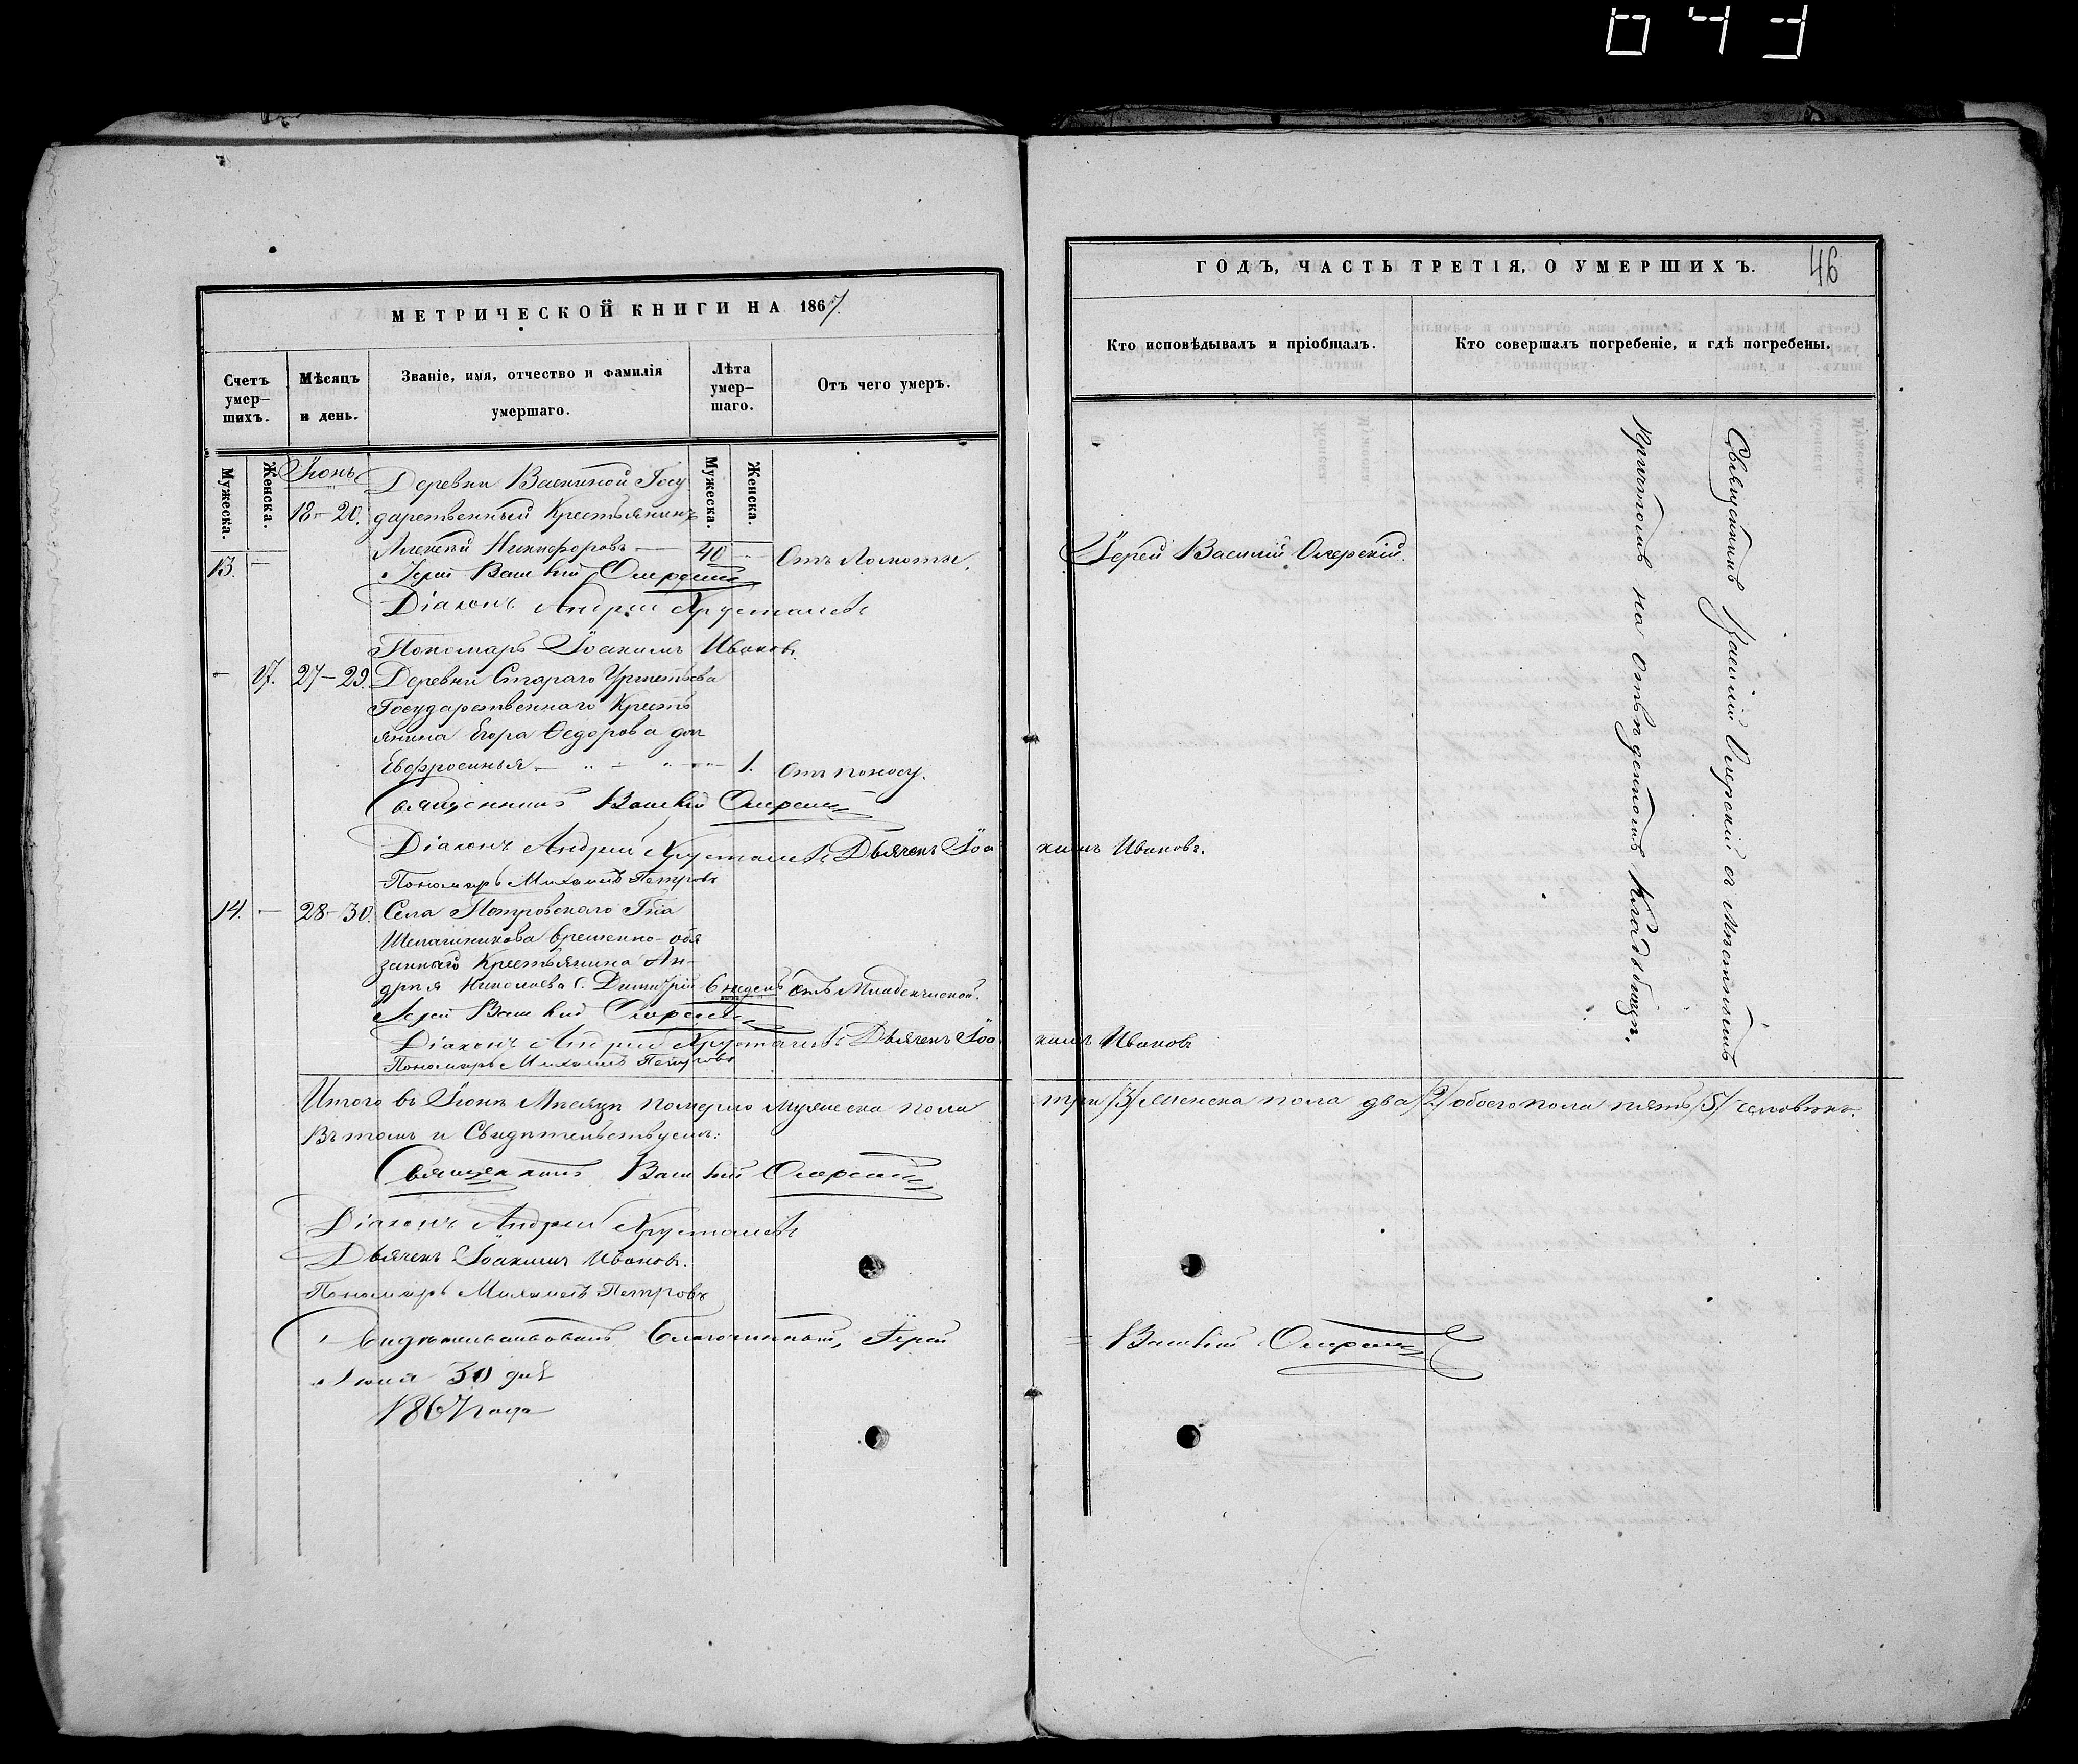 043
МЕТРИЧЕСКОЙ КНИГИ НА 1867.
Счетъ умер-шихъ.
Мѣсяцъ и день.
Званіе, имя, отчество и фамилія умершаго.
Лѣта умер-шаго.
Отъ чего умеръ.
Мужеска.
Женска.
Мужеска.
Женска.
Іюнь
Деревни Васкиной Госу
18-20. дарственный Крестьянинъ
13. — Алексѣй Никифоровъ — 40 — Отъ Ломоты.
Іерей Василій Озерскій
Діаконъ Андрей Хрусталевъ
Пономарь Іоакимъ Ивановъ.
— 17. 27-29. Деревни Стараго
Государственнаго Кресть
янина Егора Ѳедорова доч
Евфросинья — 1. Отъ поносу.
Священникъ Василій Озерскій
Діаконъ Андрей Хрусталевъ Дьячекъ Іоа
Пономарь Михаилъ Петровъ
14. — 28-30. Села Петровскаго Гна
временно-обя
заннаго Крестьянина Ан-
дрея Николаева с. Димитрій 6 недѣль отъ Младенческой.
Іерей Василій Озерскій
Діаконъ Андрей Хрусталевъ Дьячекъ Іоа
Пономарь Михаилъ Петровъ
Итого въ Іюнѣ Мѣсяцѣ померло мужеска пола
Въ томъ и Свидѣтельствуемъ:
Священникъ Василій Озерскій
Діаконъ Андрей Хрусталевъ
Дьячекъ Іоакимъ Ивановъ.
Пономарь Михаилъ Петровъ
Свидѣтельствовалъ Благочинный, Іерей
30 дня
1867 года
ГОДЪ, ЧАСТЬ ТРЕТІЯ, О УМЕРШИХЪ.
46
Кто исповѣдывалъ и пріобщалъ.
Кто совершалъ погребеніе, и гдѣ погребены.
Іерей Василій Озерскій.
Священникъ Василій Озерскій съ мѣстнымъ
Причтомъ на Отведенномъ Кладбищѣ.
кимъ Ивановъ.
кимъ Ивановъ
три /3/ женска пола два /2/ обоего пола пять /5/ человѣкъ.
Василій Озерскій